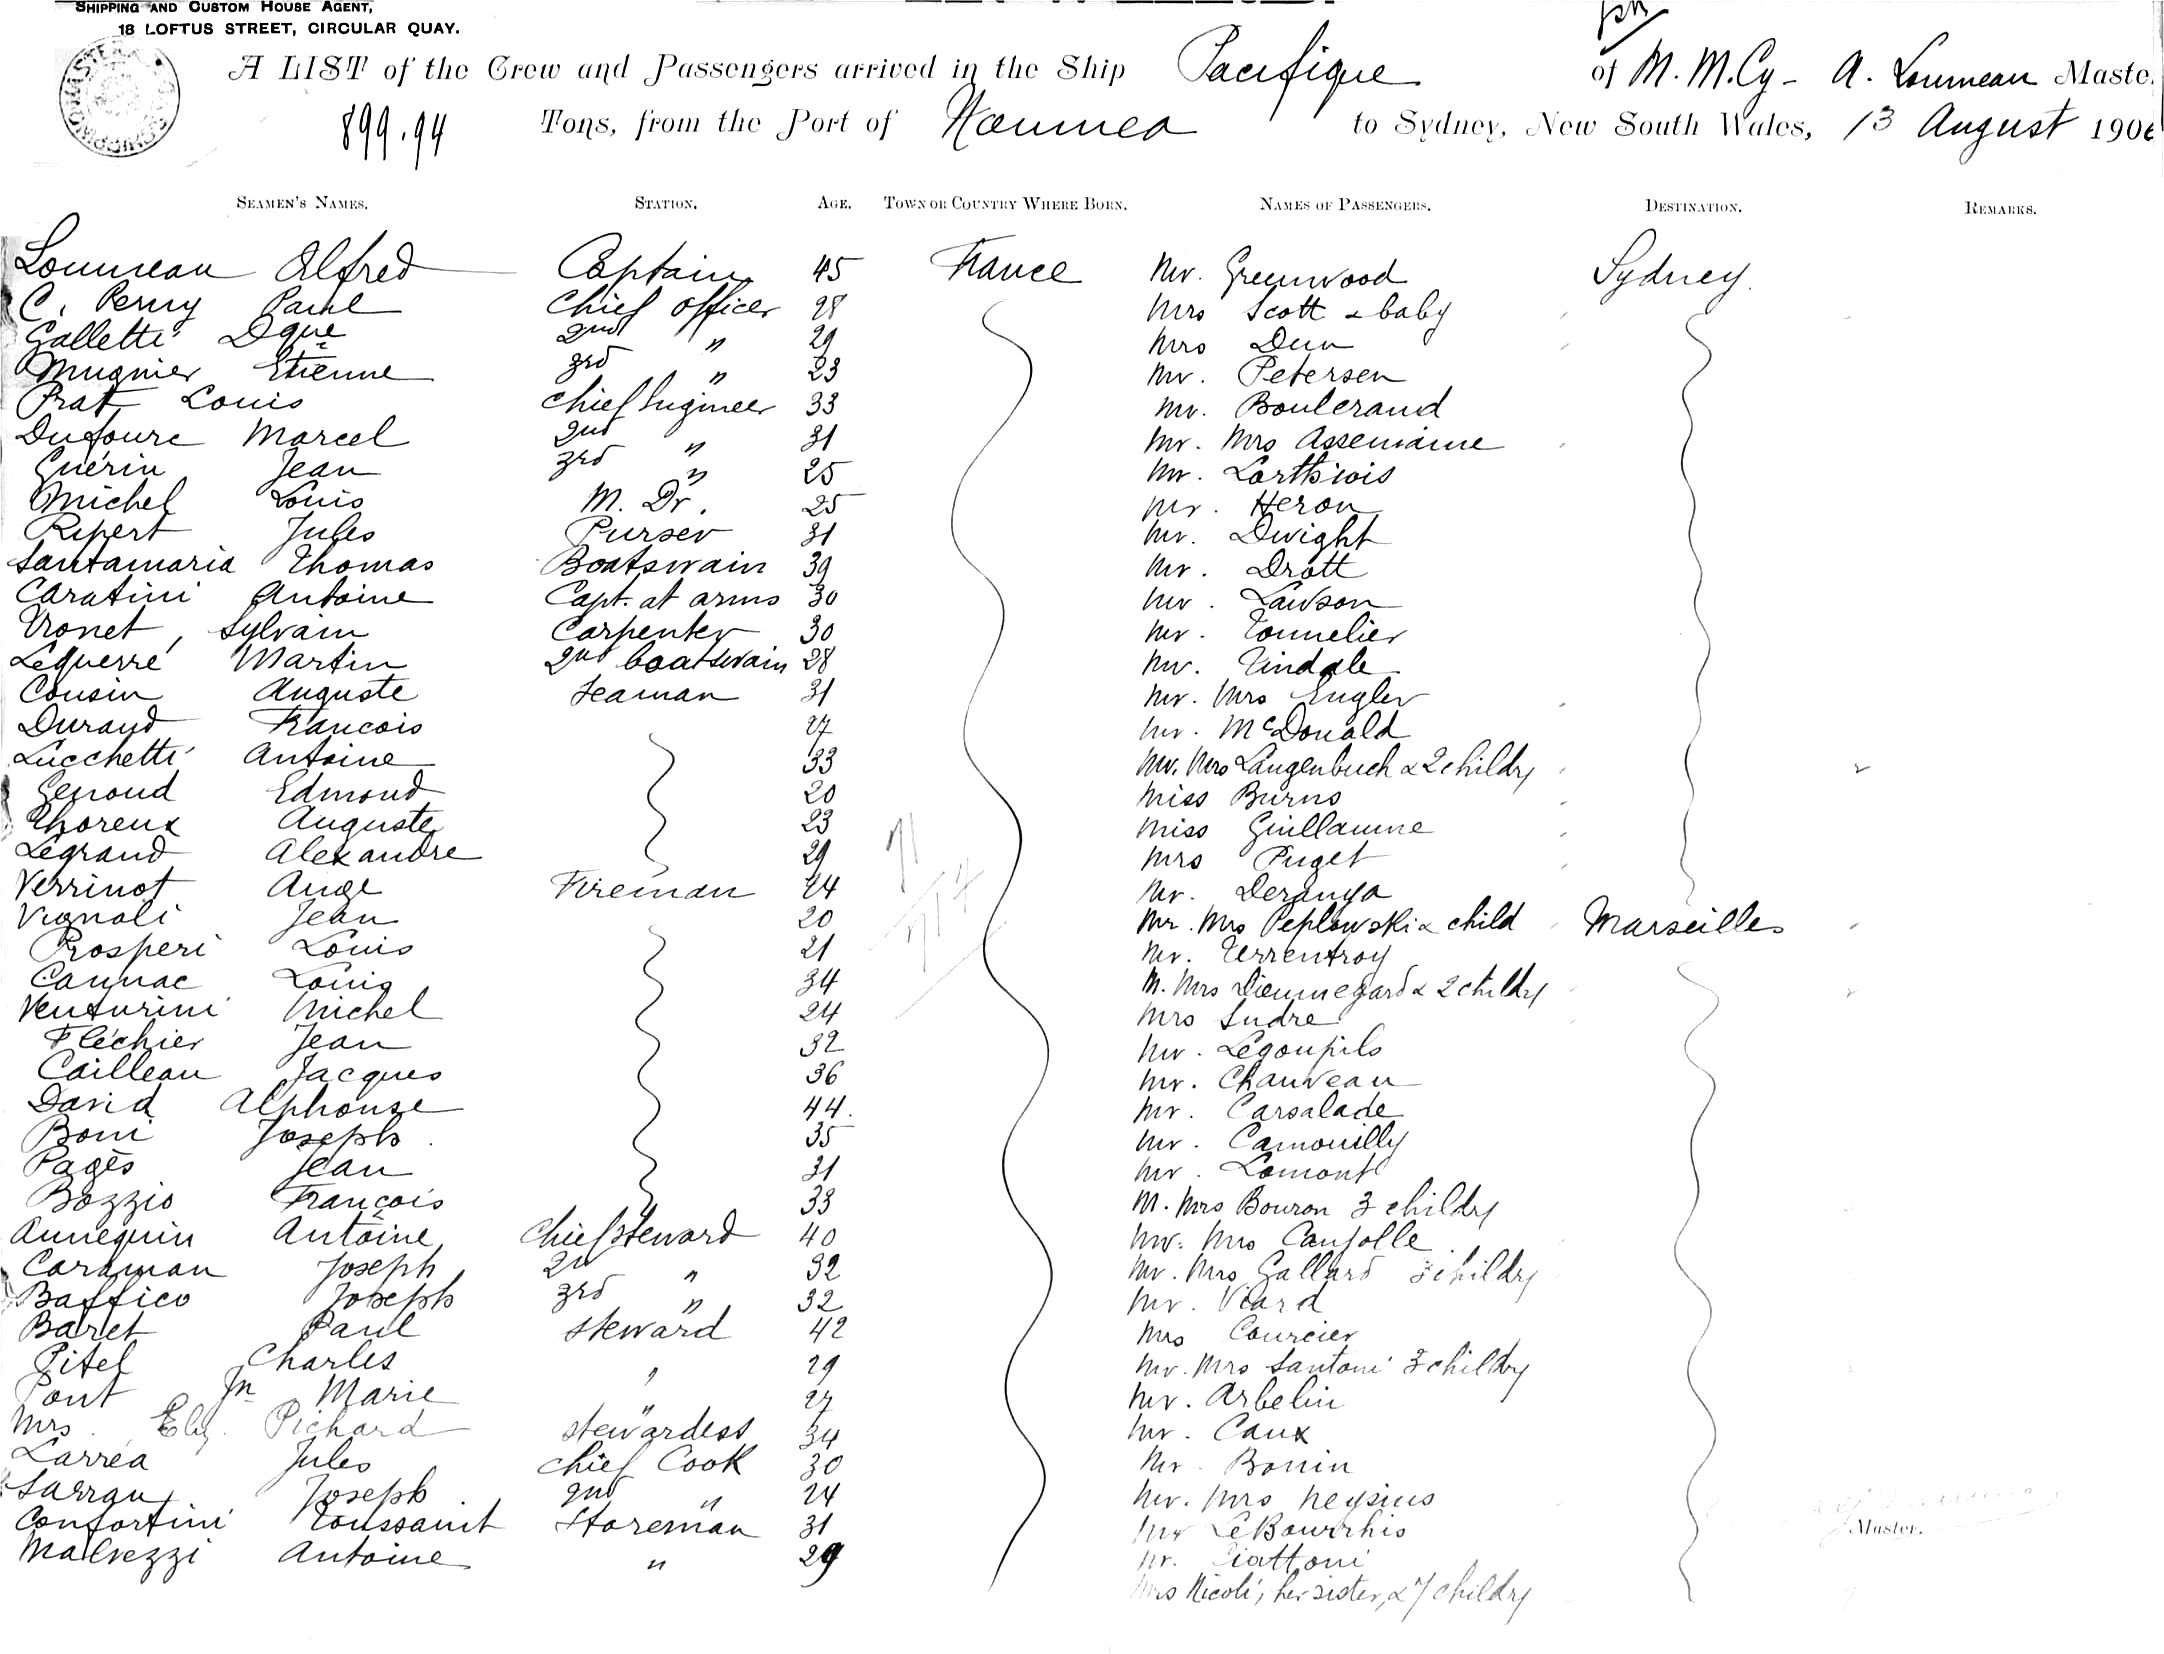 SHIPPING AND CUSTOM HOUSE AGENT,
18 LOFTUS STREET, CIRCULAR QUAY.
A LIST of the Crew and Passengers arrived in the Ship Pacifique of M. M. Cy - A. Loumeau Maste
899.94 Tons, from the Port of Noumea to Sydney, New South Wales, 13 August 190
SEAMEN'S NAMES. STATION. AGE. TOWN OR COUNTRY WHERE BORN. NAMES OF PASSENGERS. DESTINATION. REMARKS.
Loumeau Alfred Captain 45 France Mr. Greenwood Sydney
C. Perny Paul Chief officer 28 Mrs Scott & baby
Galletti Dque 2nd " 29 Mrs Dun
Mugnier Etienne 3rd " 23 Mr. Petersen
Prat Louis Chief Engineer 33 Mr. Boulerand
Dufourc Marcel 2nd " 31 Mr. Mrs Asseniaine
Guérin Jean 3rd " 25 Mr. Lorthiois
Michel Louis M. Dr. 25 Mr. Heron
Ripert Jules Purser 31 Mr. Dwight
Santamaria Thomas Boatswain 39 Mr. Drott
Caratini Antoine Capt. at arms 30 Mr. Lawson
Vronet, Sylvain Carpenter 30 Mr. Tonnelier
Lequerré Martin 2nd boatswain 28 Mr. Tindale
Cousin Auguste Seaman 31 Mr. Mrs Engler
Durand Francois 27 Mr. McDonald
Lucchetti Antoine 33 Mr. Mrs Langenbuch & 2 childrn
Genoud Edmond 20 Miss Burns
Thoreux Auguste 23 Miss Guillaume
Legrand Alexandre 29 Mrs Puget
Verrinot Ange Fireman 24 Mr. Deranga
Vignoli Jean 20 Mr. Mrs Peplowski & child Marseilles
Prosperi Louis 21 Mr. Terrentroy
Caynac Louis 34 M. Mrs Diennegard & 2 childrn
Venturini Michel 24 Mrs Sudre
Fléchier Jean 32 Mr. Legoupils
Cailleau Jacques 36 Mr. Chauveau
David Alphonse 44. Mr. Carsalade
Boni Joseph. 35 Mr. Camouilly
Pagès Jean 31 Mr. Lomont
Bozzio François 33 M. Mrs Bouron 3 childrn
Annequin Antoine Chief steward 40 Mr. Mrs Canjolle
Caraman Joseph 2d " 32 Mr. Mrs Gallard 3 childrn
Baffico Joseph 3rd " 32 Mr. Viard
Baret Paul Steward 42 Mrs Courcier
Pitel Charles " 29 Mr. Mrs Santoni 3 childrn
Pont Jn Marie " 27 Mr. Arbelin
Mrs. Eliz. Pichard Stewardess 34 Mr. Caux
Larréa Jules Chief Cook 30 Mr. Bonin
Sarrau Joseph. 2nd " 24 Mr. Mrs Neysius
Confortini Toussaint Storeman 31 Mr LeBourrhis Master.
Malvezzi Antoine " 29 Mr. Ciattoni
Mrs Nicoli, her sister, & 7 childrn